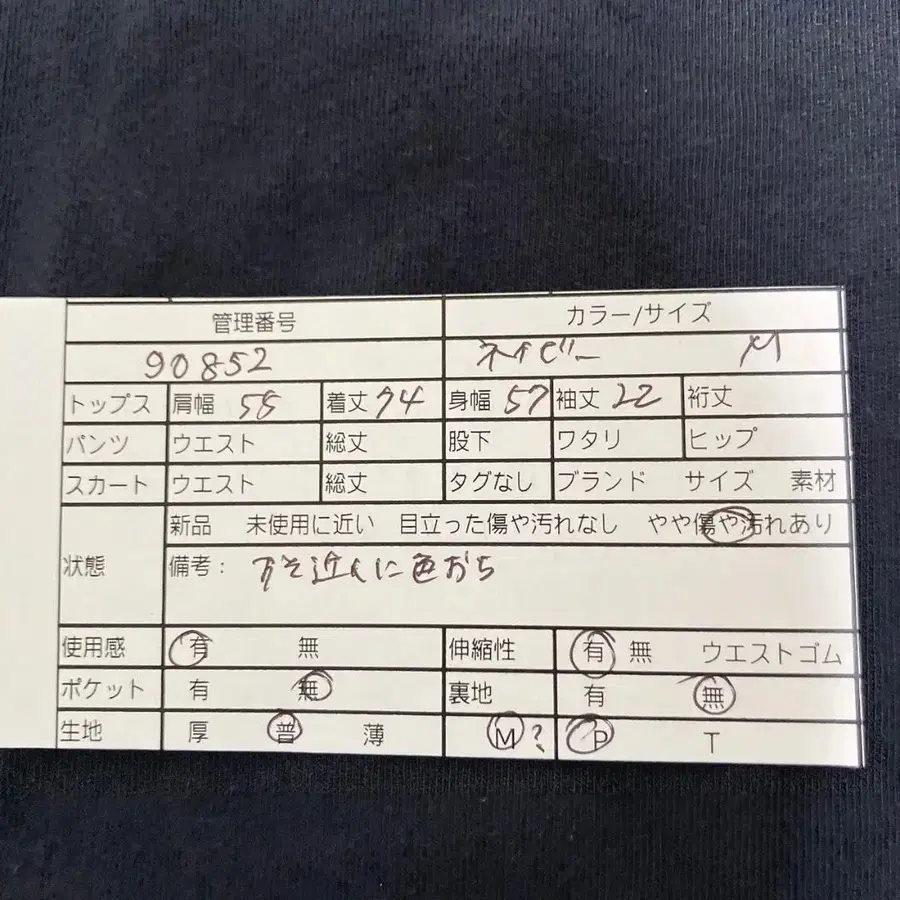 管理番号 カラー/サイズ
90852 ネイビー M
トップス 肩幅 58 着丈 74 身幅 57 袖丈 22 裄丈
パンツ ウエスト 総丈 股下 ワタリ ヒップ
スカート ウエスト 総丈 タグなし ブランド サイズ 素材
新品 未使用に近い 目立った傷や汚れなし やや傷や汚れあり
状態 備考: すそ近くに色おち
使用感 有 無 伸縮性 有 無 ウエストゴム
ポケット 有 無 裏地 有 無
生地 厚 普 薄 M ? P T